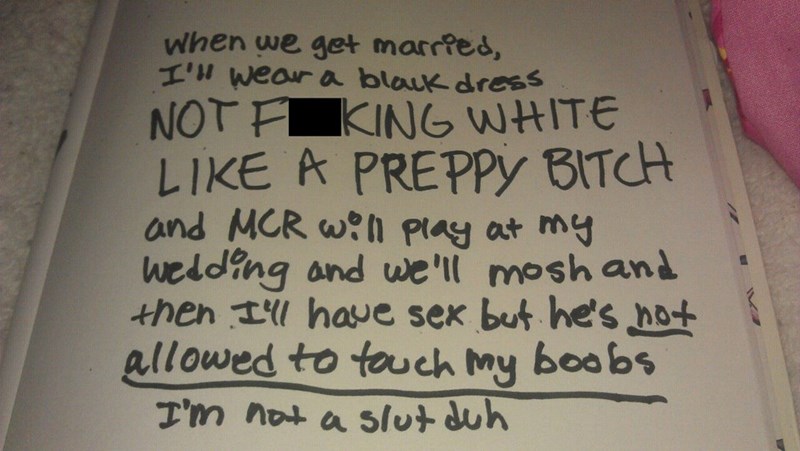 When we get married,
I'll wear a black dress
NOT F KING WHITE
LIKE A PREPPY BITCH
and MCR will play at my
wedding and we'll mosh and
then I'll have sex but he's not
allowed to touch my boobs
I'm not a slut duh